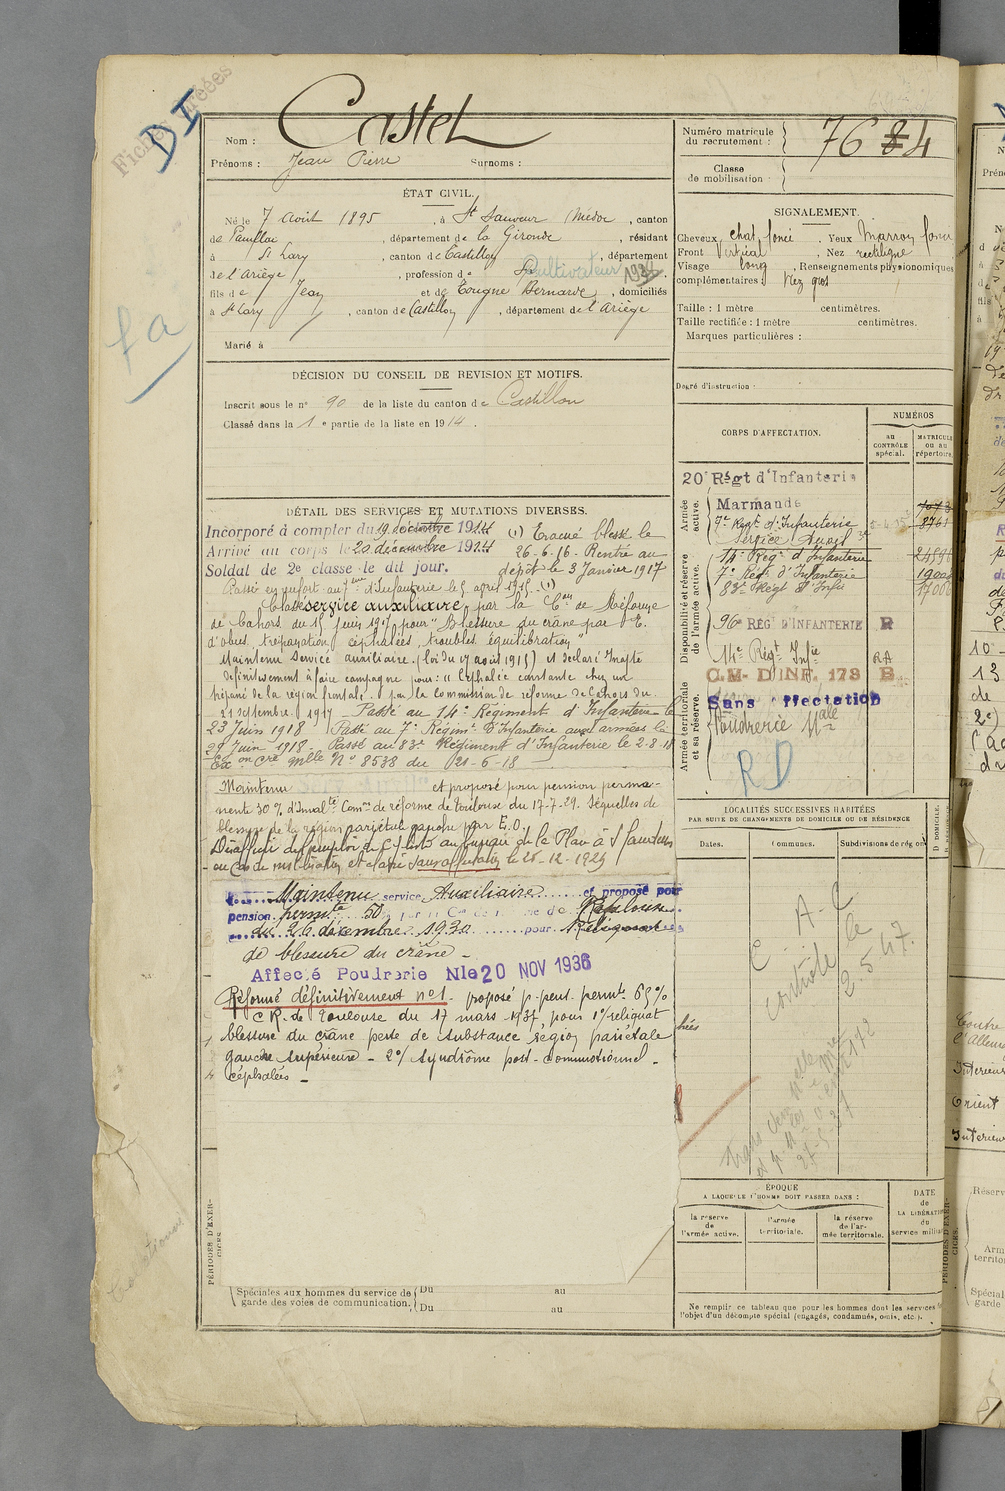 Fiches créées
DI
fa
Nom : Castel
Prénoms : Jean Pierre Surnoms :
Numéro matricule du recrutement : 7684
Classe de mobilisation :
ÉTAT CIVIL.
Né le 7 août 1895, à St Sauveur Médoc, canton
de Pauillac, département de la Gironde, résidant
à St Lary, canton de Castillon, département
de l'Ariège, profession de Cultivateur 1932
fils de Jean et de Tougne Bernarde, domiciliés
à St Lary, canton de Castillon, département de l'Ariège
Marié à
SIGNALEMENT.
Cheveux chat. foncé. Yeux Marron foncé
Front Vertical. Nez rectiligne
Visage long. Renseignements physionomiques
complémentaires : Nez gros
Taille : 1 mètre centimètres.
Taille rectifiée : 1 mètre centimètres.
Marques particulières :
Degré d'instruction :
DÉCISION DU CONSEIL DE REVISION ET MOTIFS.
Inscrit sous le n° 90 de la liste du canton de Castillon
Classé dans la 1e partie de la liste en 1914.
DÉTAIL DES SERVICES ET MUTATIONS DIVERSES.
Incorporé à compter du 19 décembre 1914
Arrivé au corps le 20 décembre 1914
Soldat de 2e classe le dit jour.
(1) Evacué blessé le
26-6-16. Rentré au
dépôt le 3 Janvier 1917
Passé en renfort au 7ème d'Infanterie le 5 avril 1915. (1)
Classé service auxiliaire par la Con de Réforme
de Cahors du 15 juin 1917 pour "Blessure du crâne par E.
d'obus, trépanation, céphalées, troubles équilibration"
Maintenu Service auxiliaire. (loi du 17 août 1915) et déclaré Inapte
définitivement à faire campagne pour : "Céphalée constante chez un
trépané de la région frontale. p. la commission de réforme de Cahors du
21 septembre 1917 - Passé au 14e Régiment d'Infanterie le
23 Juin 1918 Passé au 7e Régimt d'Infanterie aux armées le
29 Juin 1918. Passé au 83e Régiment d'Infanterie le 2-8-18
N° 8538 du 20-6-18
Maintenu et proposé pour pension perma-
nente 30% d'Inval.té Comon de réforme de Toulouse du 17-7-29. Séquelles de
blessure de la région pariétale gauche par E.O.
et classé Sans affectation le 26-12-1929
Maintenu service Auxiliaire et proposé pour
pension permte 50% par la Con de réforme de Toulouse
du 26 décembre 1930 pour Reliquat
de blessure du crâne -
Affecté Poudrerie Nle 20 NOV 1936
Réformé définitivement n°1 - proposé p. pens. permte 65%
C.R. de Toulouse du 17 mars 1937 pour 1°/ reliquat
blessure du crâne perte de substance région pariétale
gauche supérieure - 2°/ syndrôme post-commotionnel -
céphalées -
CORPS D'AFFECTATION.
NUMÉROS
au CONTRÔLE spécial.
MATRICULE ou au répertoire.
Armée active.
20e Régt d'Infanterie
Marmande
7e Regt d'Infanterie 8761
Service Auxil
Disponibilité et réserve de l'armée active.
14e Régt d'Infanterie
7e Régt d'Infanterie
83e Régt d'Infie
96e RÉGT D'INFANTERIE R
14e Régt Infie RA
Armée territoriale et sa réserve.
C.M. D'INF. 173 B
Sans affectation
Poudrerie Nale
RD
LOCALITÉS SUCCESSIVES HABITÉES
PAR SUITE DE CHANGEMENTS DE DOMICILE OU DE RÉSIDENCE
Dates. Communes. Subdivisions de région
contrôlé le
2.5.47.
ÉPOQUE
A LAQUELLE L'HOMME DOIT PASSER DANS :
la réserve de l'armée active.
l'armée territoriale.
la réserve de l'armée territoriale.
DATE de LA LIBÉRATION du service militaire
PÉRIODES D'EXERCICES.
Spéciales aux hommes du service de garde des voies de communication.
Du au
Du au
Ne remplir ce tableau que pour les hommes dont les services
l'objet d'un décompte spécial (engagés, condamnés, omis, etc.).